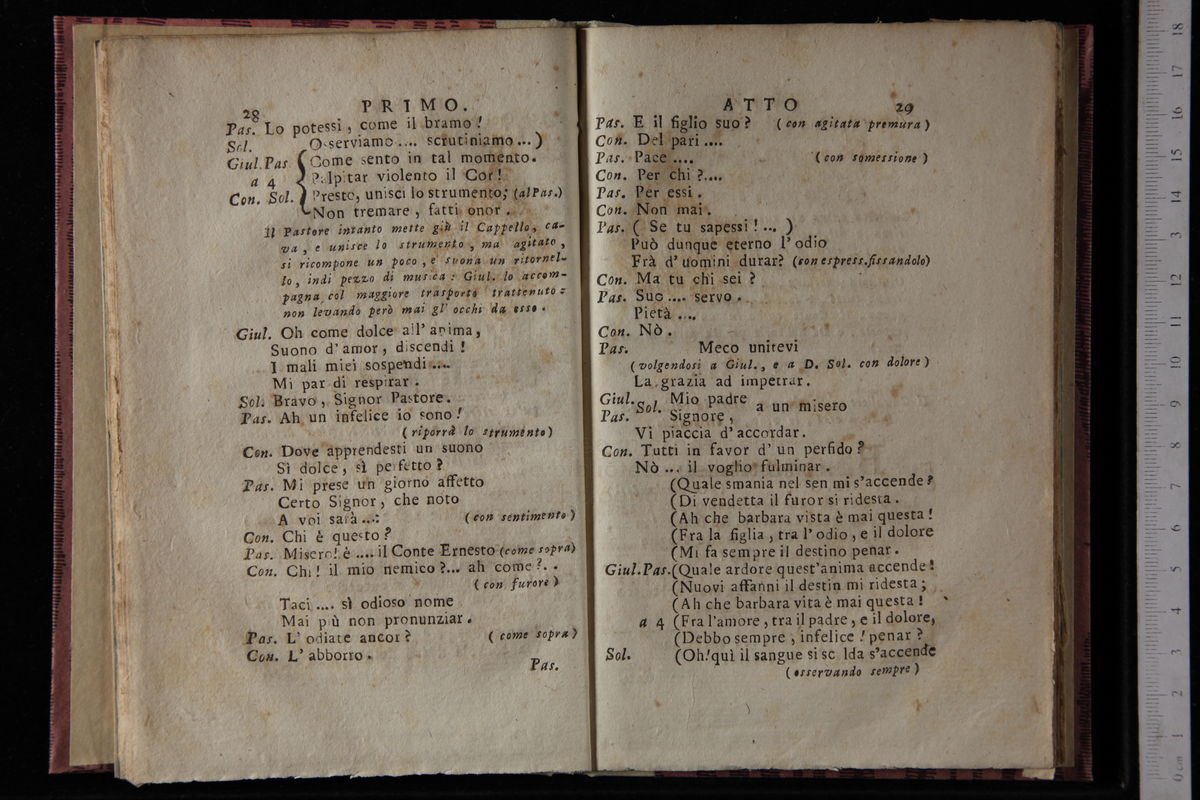 28
PRIMO.
Pas. Lo potessi, come il bramo!
Sol. Osserviamo .... scrutiniamo ... )
Giul. Pas Come sento in tal momento.
a 4 Palpitar violento il Cor!
Con. Sol. Presto, unisci lo strumento; (al Pas.)
Non tremare, fatti onor.
Il Pastore intanto mette giù il Cappello, ca-
va, e unisce lo strumento, ma agitato,
si ricompone un poco, e suona un ritornel-
lo, indi pezzo di musica: Giul. lo accom-
pagna col maggiore trasporto trattenuto:
non levando però mai gl' occhi da esso.
Giul. Oh come dolce all' anima,
Suono d' amor, discendi!
I mali miei sospendi ....
Mi par di respirar.
Sol. Bravo, Signor Pastore.
Pas. Ah un infelice io sono!
(riporrà lo strumento)
Con. Dove apprendesti un suono
Sì dolce, sì perfetto?
Pas. Mi prese un giorno affetto
Certo Signor, che noto
A voi sarà ...: (con sentimento)
Con. Chi è questo?
Pas. Misero! è .... il Conte Ernesto (come sopra)
Con. Chi! il mio nemico?... ah come?. .
(con furore)
Taci .... sì odioso nome
Mai più non pronunziar.
Pas. L' odiate ancor? (come sopra)
Con. L' abborro.
Pas.
ATTO 29
Pas. E il figlio suo? (con agitata premura)
Con. Del pari ....
Pas. Pace .... (con somessione)
Con. Per chi?....
Pas. Per essi.
Con. Non mai.
Pas. ( Se tu sapessi! ... )
Può dunque eterno l' odio
Frà d' uomini durar? (con espress. fissandolo)
Con. Ma tu chi sei?
Pas. Suo .... servo.
Pietà ....
Con. Nò.
Pas. Meco unitevi
(volgendosi a Giul., e a D. Sol. con dolore)
La grazia ad impetrar.
Giul. Sol. Mio padre a un misero
Pas. Signore,
Vi piaccia d' accordar.
Con. Tutti in favor d' un perfido?
Nò ... il voglio fulminar.
(Quale smania nel sen mi s'accende?
(Di vendetta il furor si ridesta.
(Ah che barbara vista è mai questa!
(Fra la figlia, tra l' odio, e il dolore
(Mi fa sempre il destino penar.
Giul. Pas. (Quale ardore quest' anima accende!
(Nuovi affanni il destin mi ridesta;
(Ah che barbara vita è mai questa!
a 4 (Fra l'amore, tra il padre, e il dolore,
(Debbo sempre, infelice! penar?
Sol. (Oh! quì il sangue si sc lda s'accende
(osservando sempre)